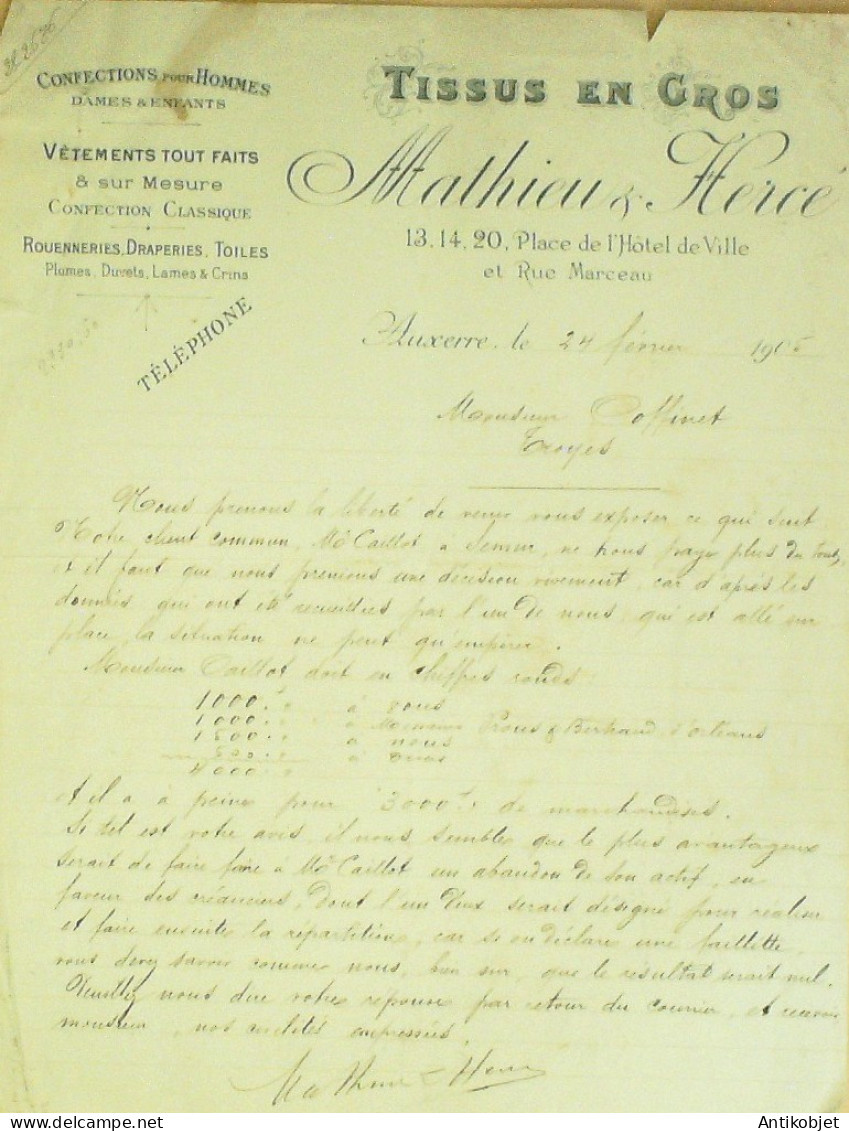 CONFECTIONS POUR HOMMES
DAMES & ENFANTS
VÊTEMENTS TOUT FAITS
& SUR MESURE
CONFECTION CLASSIQUE
ROUENNERIES, DRAPERIES, TOILES
Plumes, Duvets, Laines & Crins
TÉLÉPHONE
TISSUS EN GROS
Mathieu & Hercé
13, 14, 20, Place de l'Hôtel de Ville
et Rue Marceau
Auxerre, le 24 février 1905
Monsieur Coffinet
Troyes
Nous prenons la liberté de venir vous exposer ce qui suit
Notre client commun, Mr Caillot à Semur, ne nous paye plus du tout,
et il faut que nous prenions une décision vivement, car d'après les
données qui ont été recueillies par l'un de nous, qui est allé sur
place, la situation ne peut qu'empirer.
Monsieur Caillot doit en chiffres ronds
1000. " à vous
1000. " à Messieurs & Bertrand d'Orléans
1500. " à nous
500. " à
4000. "
et il a à peine pour 3000 f de marchandises.
Si tel est votre avis, il nous semble que le plus avantageux
serait de faire faire à Mr Caillot un abandon de son actif, en
faveur des créanciers, dont l'un d'eux serait désigné pour réaliser
et faire ensuite la répartition, car si on déclare une faillite,
vous devez savoir comme nous, bien sûr, que le résultat serait nul.
Veuillez nous dire votre réponse par retour du courrier, et recevoir
monsieur, nos civilités empressées.
Mathieu & Hercé
Antikobjet